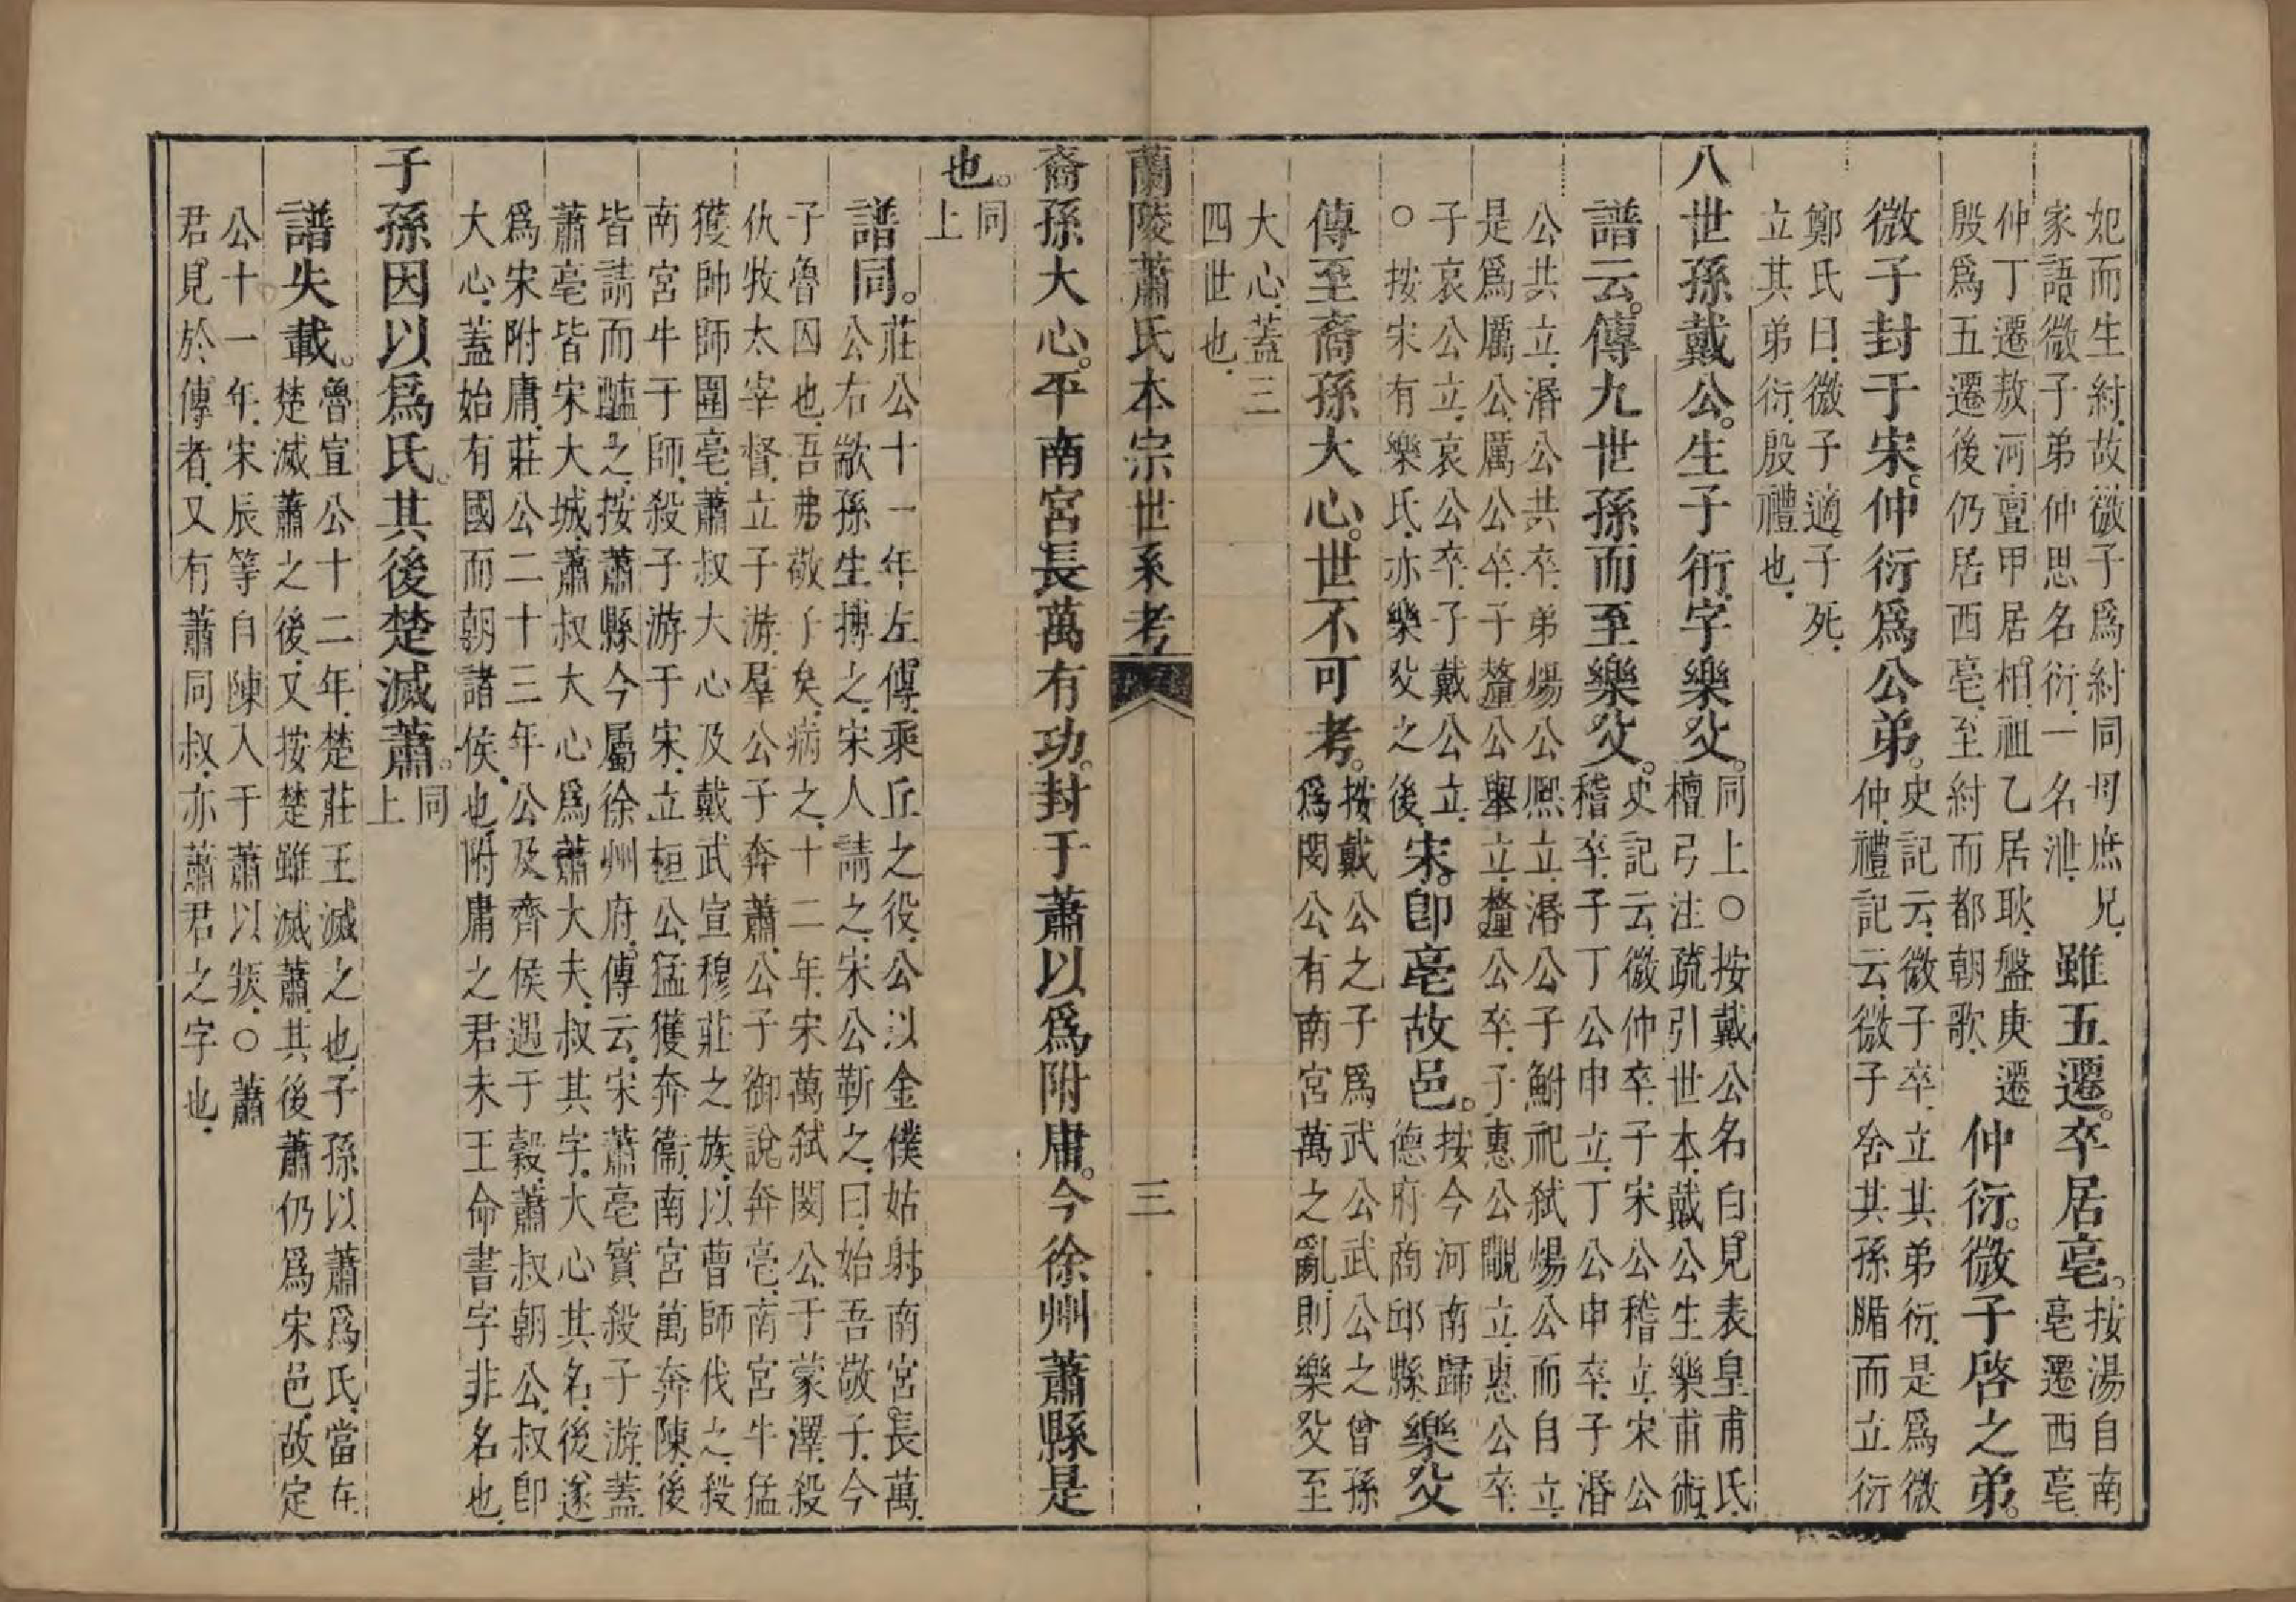 妃而生紂故微子爲紂同母庶兄雖五遷卒居亳按湯自南
家語微子弟仲思名衍一名泄亳遷西亳
仲丁遷敖河亶甲居相祖乙居耿盤庚遷仲衍微子啓之弟
殷爲五遷後仍居西亳至紂而都朝歌
微子封于宋仲衍爲公弟史記云微子卒立其弟衍是爲微
仲禮記云微子舍其孫腯而立衍
鄭氏曰微子適子死
立其弟衍殷禮也
八世孫戴公生子衎字樂父同上○按戴公名白見表皇甫氏
檀弓注疏引世本戴公生樂甫術
譜云傳九世孫而至樂父史記云微仲卒子宋公稽立宋公
稽卒子丁公申立丁公申卒子湣
公共立湣公共卒弟煬公熙立湣公子鮒祀弒煬公而自立
是爲厲公厲公卒子釐公舉立釐公卒子惠公覵立惠公卒
子哀公立哀公卒子戴公立宋卽亳故邑按今河南歸
○按宋有樂氏亦樂父之後德府商邱縣樂父
傳至裔孫大心世不可考按戴公之子爲武公武公之曾孫
爲閔公有南宮萬之亂則樂父至
大心蓋三
四世也
蘭陵蕭氏本宗世系考 三
裔孫大心平南宮長萬有功封于蕭以爲附庸今徐州蕭縣是
也同
上
譜同莊公十一年左傳乘丘之役公以金僕姑射南宮長萬
公右歂孫生搏之宋人請之宋公靳之曰始吾敬子今
子魯囚也吾弗敬子矣病之十二年宋萬弒閔公于蒙澤殺
仇牧太宰督立子游羣公子奔蕭公子御說奔亳南宮牛猛
獲帥師圍亳蕭叔大心及戴武宣穆莊之族以曹師伐之殺
南宮牛于師殺子游于宋立桓公猛獲奔衞南宮萬奔陳後
皆請而醢之按蕭縣今屬徐州府傳云宋蕭亳實殺子游蓋
蕭亳皆宋大城蕭叔大心爲蕭大夫叔其字大心其名後遂
爲宋附庸莊公二十三年公及齊侯遇于穀蕭叔朝公叔卽
大心蓋始有國而朝諸侯也附庸之君未王命書字非名也
子孫因以爲氏其後楚滅蕭同
上
譜失載魯宣公十二年楚莊王滅之也子孫以蕭爲氏當在
楚滅蕭之後又按楚雖滅蕭其後蕭仍爲宋邑故定
公十一年宋辰等自陳入于蕭以叛○蕭
君見於傳者又有蕭同叔亦蕭君之字也